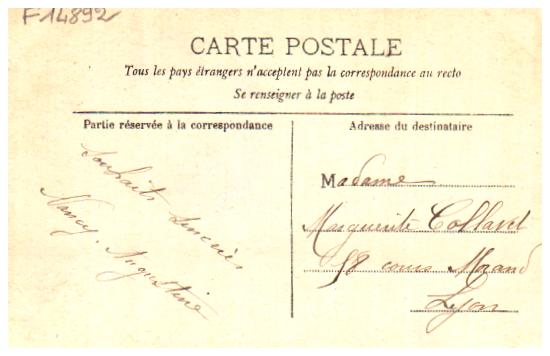 F-14892
CARTE POSTALE
Tous les pays étrangers n'acceptent pas la correspondance au recto
Se renseigner à la poste
Partie réservée à la correspondance
Souhaits sincères
Nancy. Augustine
Adresse du destinataire
Madame
Marguerite
58 cours Morand
Lyon